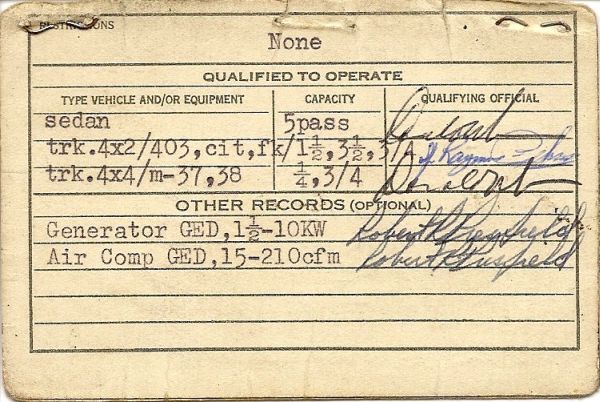 RESTRICTIONS
None
QUALIFIED TO OPERATE
TYPE VEHICLE AND/OR EQUIPMENT CAPACITY QUALIFYING OFFICIAL
sedan 5pass
trk.4x2/403,cit,fk/1½,3½,3/4
trk.4x4/m-37,38 ¼,3/4
OTHER RECORDS (OPTIONAL)
Generator GED,1½-10KW Robert
Air Comp GED,15-210cfm Robert